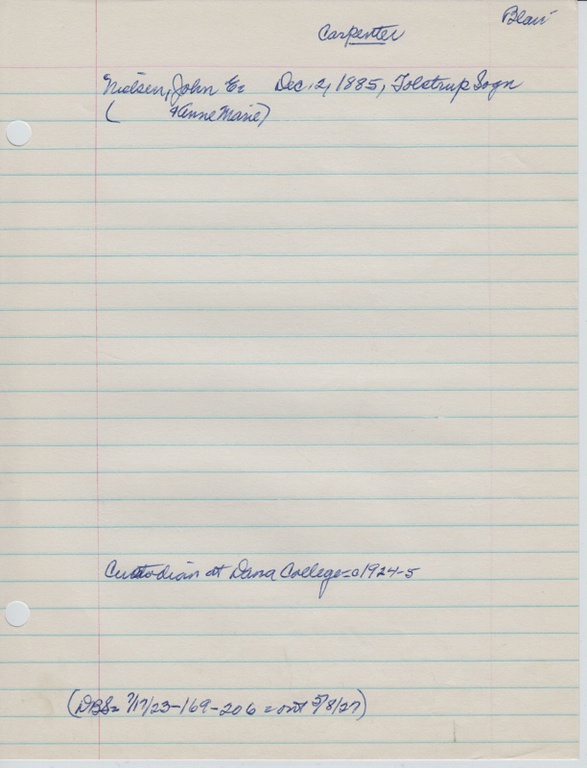 Blair
Carpenter
Nielsen, John E= Dec. 2, 1885, Tolstrup Sogn
( & Anne Marie)
Custodian at Dana College=01924-5
(DBS= 7/17/23-169-206 = out 5/8/27)